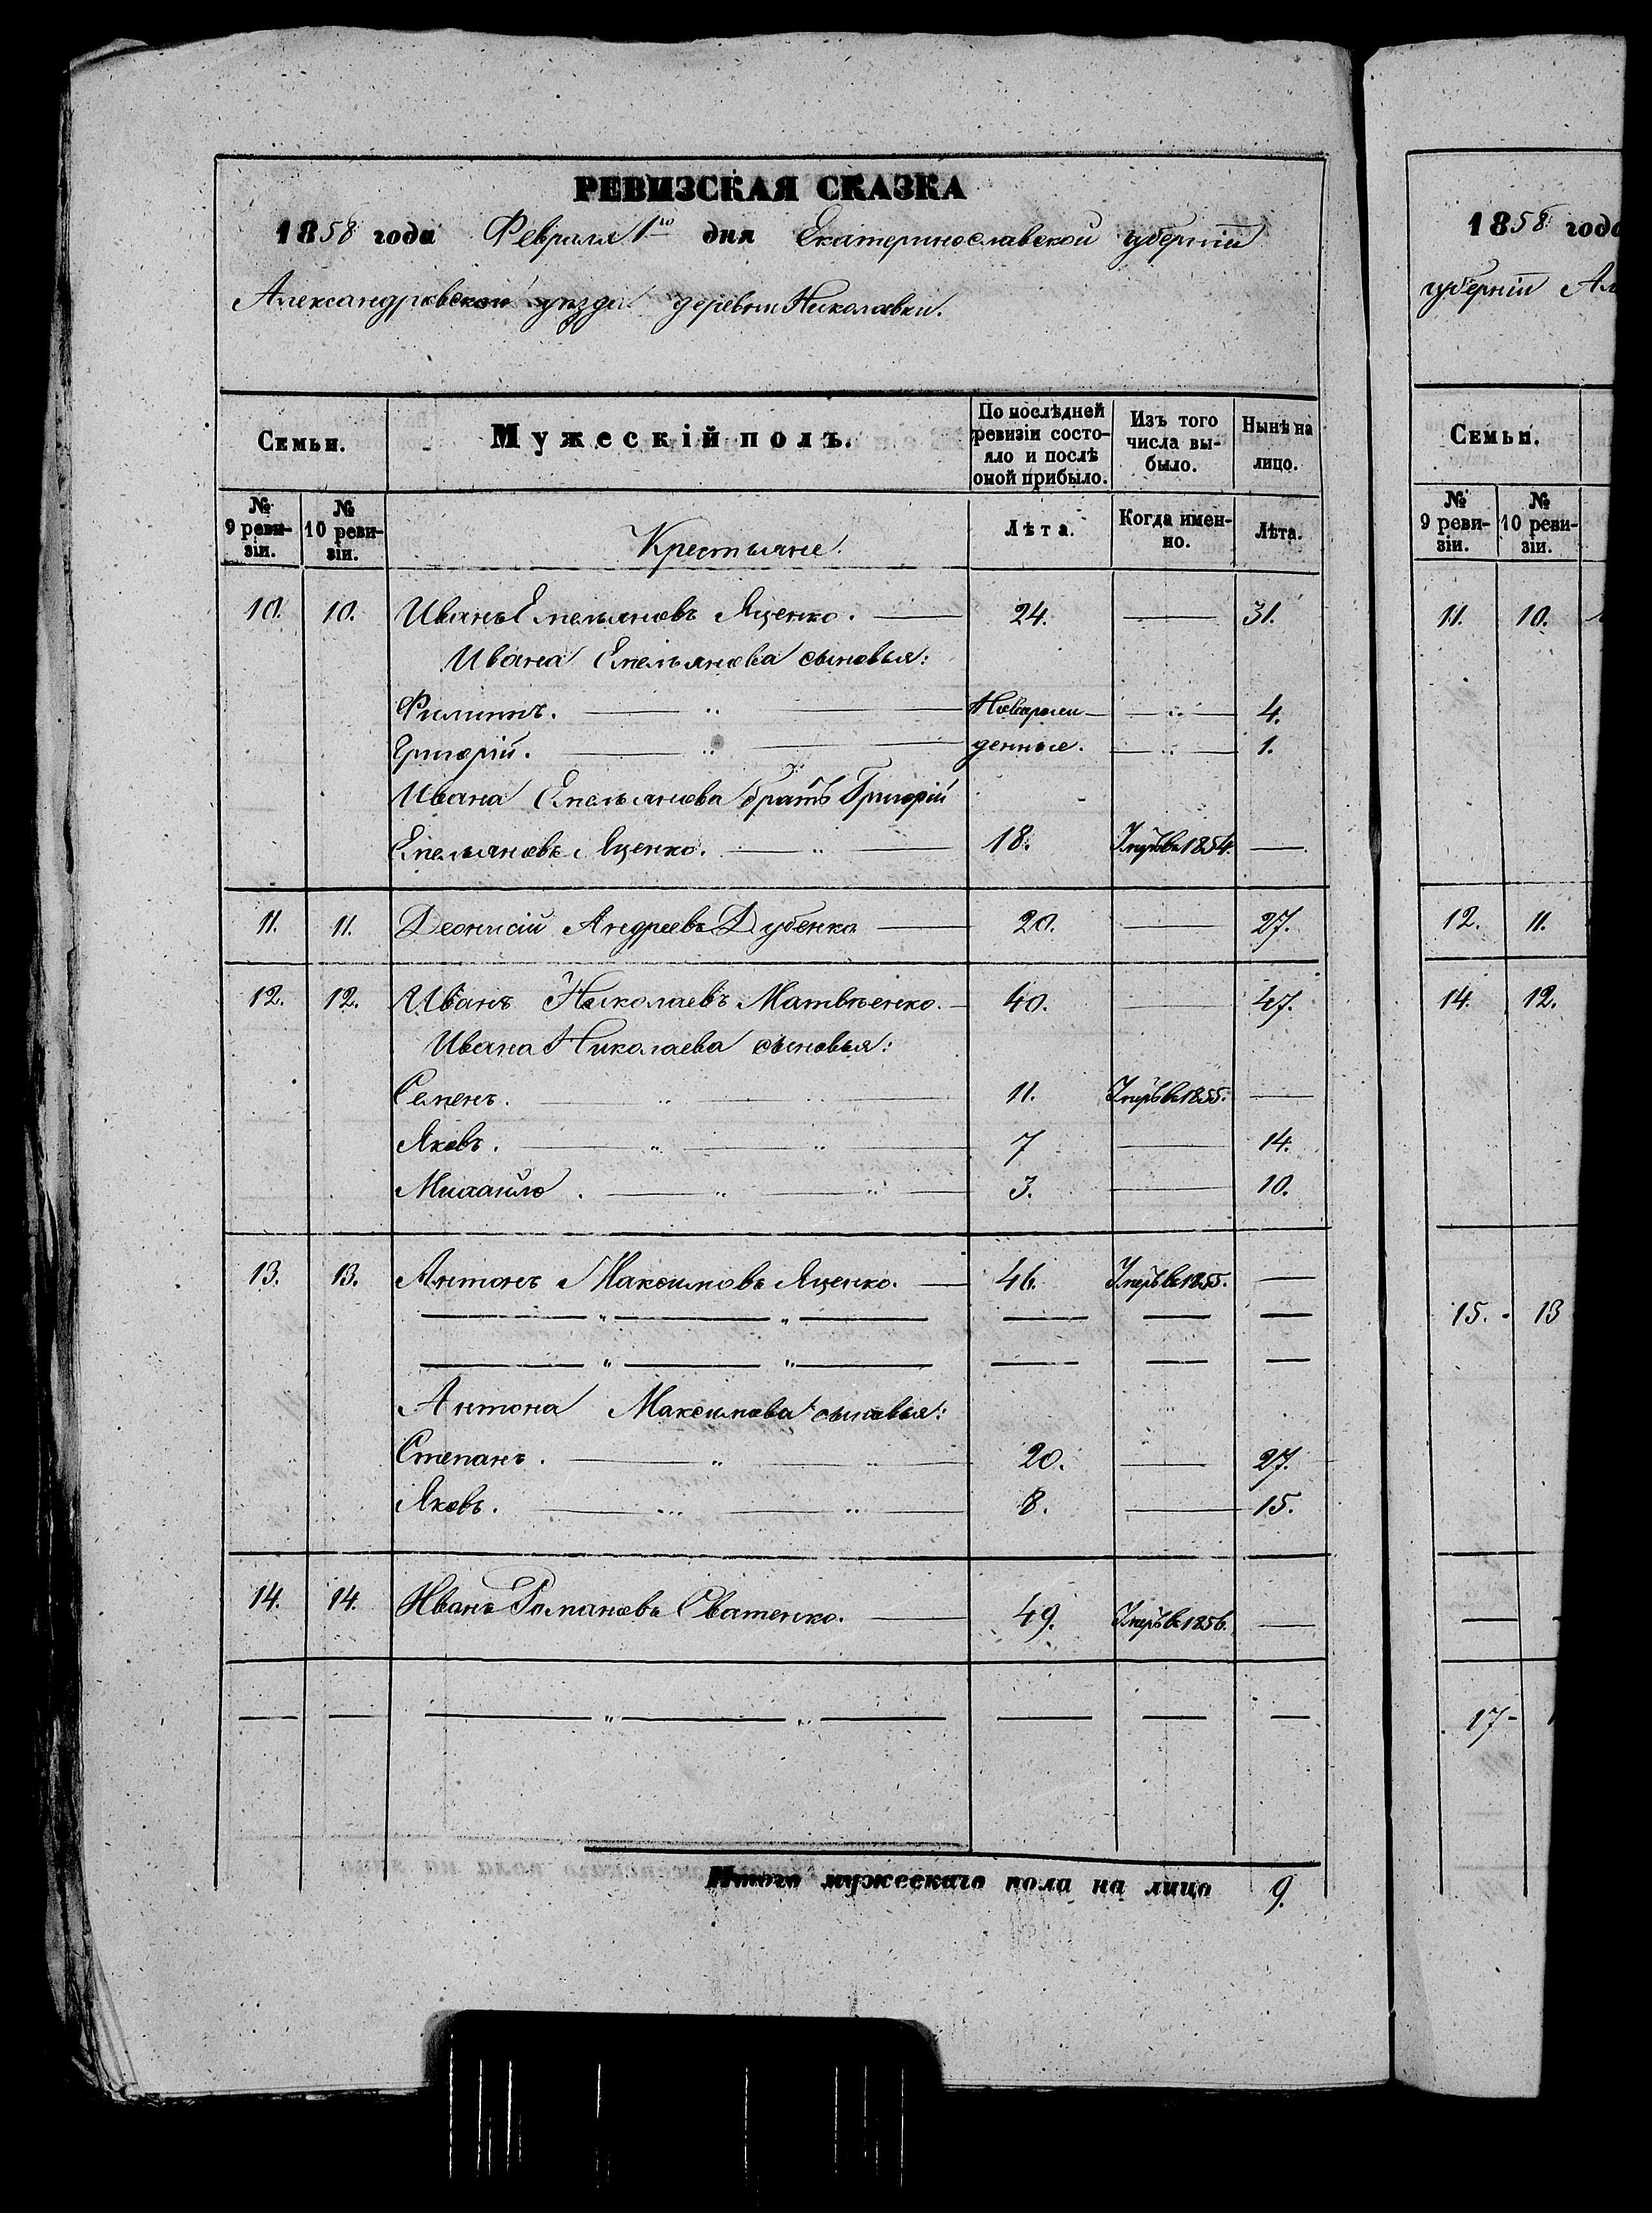 РЕВИЗСКАЯ СКАЗКА
1858 года Февраля 1го дня Екатеринославской губерніи
Александровскаго уезда деревни Николаевки.
Семьи. Мужескій полъ. По послѣдней ревизіи состояло и послѣ оной прибыло. Изъ того числа выбыло. Нынѣ на лицо.
№ 9 ревизіи. № 10 ревизіи. Крестьяне. Лѣта. Когда именно. Лѣта.
10. 10. Иванъ Емельяновъ Яценко. — 24. — 31.
Ивана Емельянова сыновья:
Филиппъ. — „ — Новорож- — „ — 4.
Григорій. — „ — денные. — „ — 1.
Ивана Емельянова братъ Григорій
Емельяновъ Яценко. — „ — 18. Умеръ въ 1854. —
11. 11. Деонисій Андреевъ Дубенко — 20. — 27.
12. 12. Иванъ Николаевъ Матвѣенко. — 40. — 47.
Ивана Николаева сыновья:
Семенъ. — „ — 11. Умеръ въ 1855. —
Яковъ. — „ — „ — 7 — 14.
Михайло. — „ — „ — 3. — 10.
13. 13. Антонъ Максимовъ Яценко. — 46. Умеръ въ 1855. —
— „ — „ — — — —
— „ — „ — — — —
Антона Максимова сыновья:
Степанъ. — „ — „ — 20. — 27.
Яковъ. — „ — „ — 8. — 15.
14. 14. Иванъ Романовъ Сватенко. — 49. Умеръ въ 1856. —
— — — „ — „ — — — —
Итого мужескаго пола на лицо 9.
1858 года
губерніи Ал
Семьи.
№ 9 ревизіи. № 10 ревизіи.
11. 10.
12. 11.
14. 12.
15. 13
—
17-